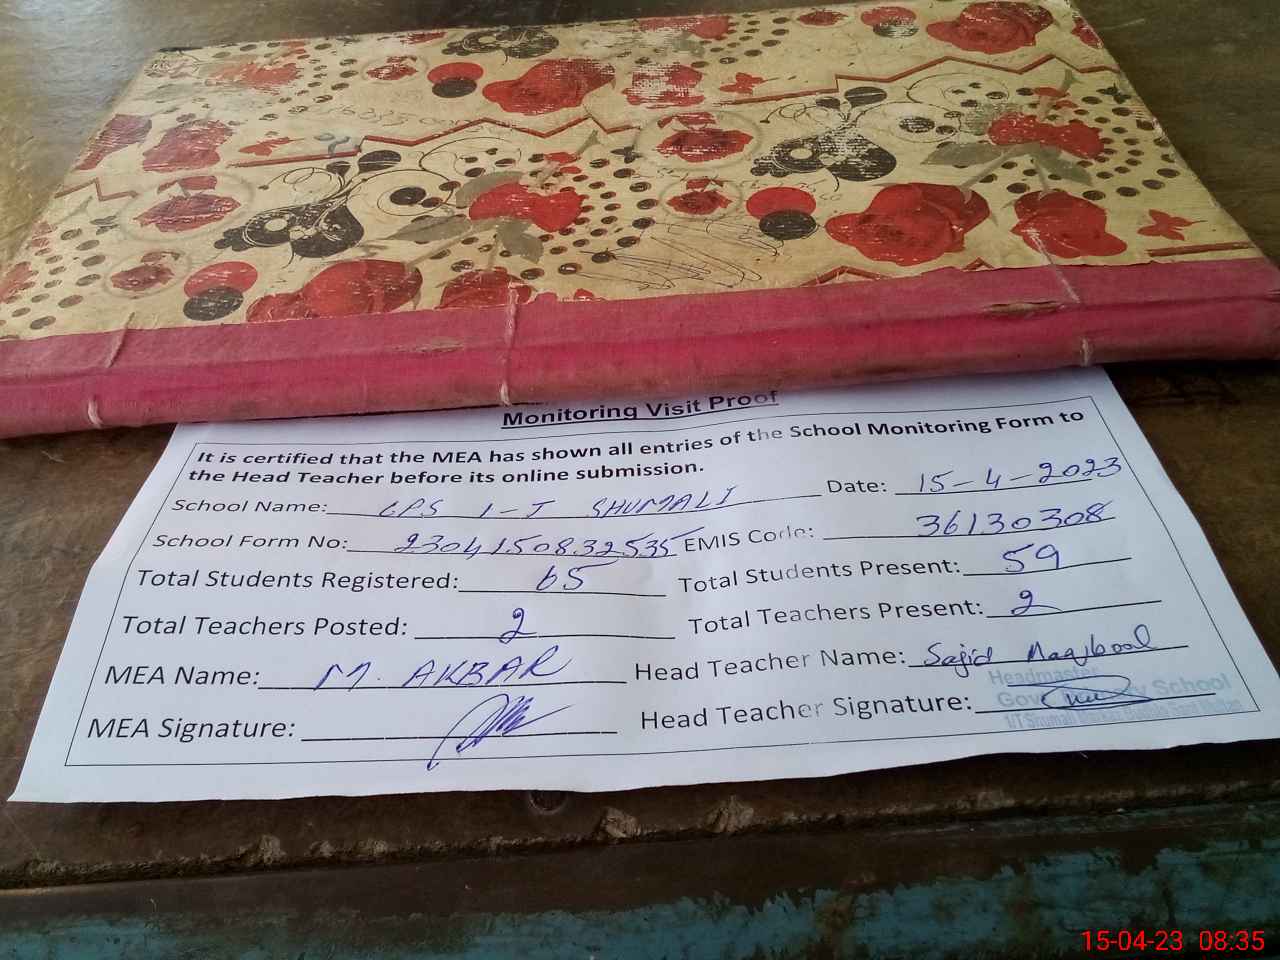 Monitoring Visit Proof
It is certified that the MEA has shown all entries of the School Monitoring Form to
the Head Teacher before its online submission.
School Name: GPS 1-T SHUMALI Date: 15-4-2023
School Form No: 2304150832535 EMIS Code: 36130308
Total Students Registered: 65 Total Students Present: 59
Total Teachers Posted: 2 Total Teachers Present: 2
MEA Name: M. AKBAR Head Teacher Name: Sajid Maqbool
MEA Signature: Head Teacher Signature:
Headmaster
School
15-04-23 08:35